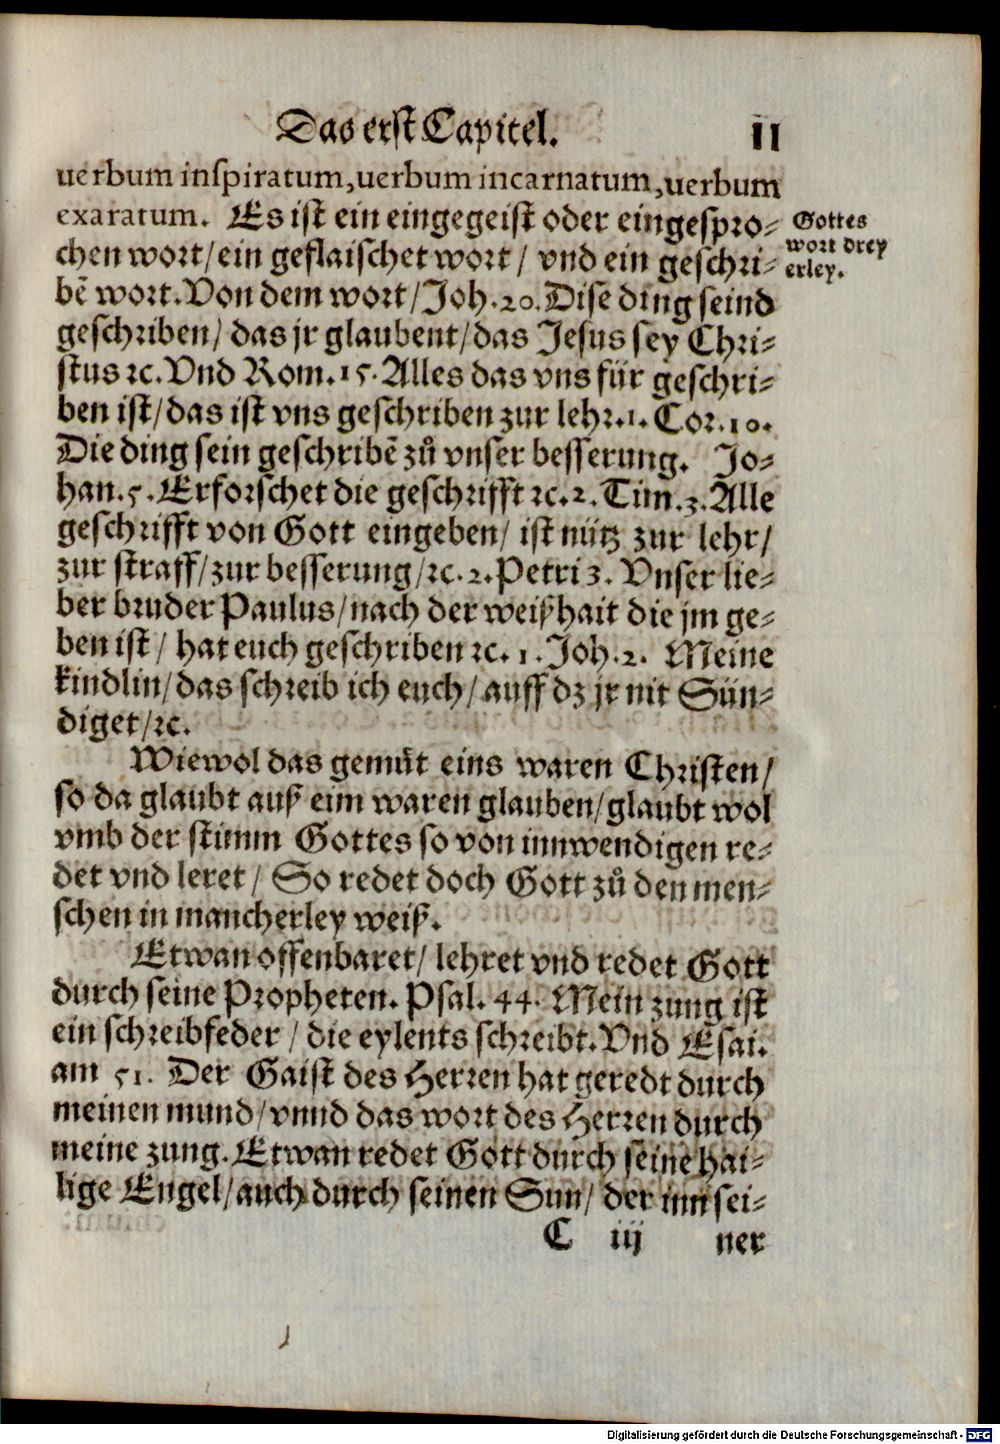 Das erst Capitel. 11
uerbum inspiratum, uerbum incarnatum, uerbum
exaratum. Es ist ein eingegeist oder eingespro-
chen wort/ ein geflaischet wort/ vnd ein geschri-
bē wort. Von dem wort/ Joh. 20. Dise ding seind
geschriben/ das jr glaubent/ das Jesus sey Chri-
stus ꝛc. Vnd Rom. 15. Alles das vns für geschri-
ben ist/ das ist vns geschriben zur lehr. 1. Cor. 10.
Die ding sein geschribē zů vnser besserung. Jo-
han. 5. Erforschet die geschrifft ꝛc. 2. Tim. 3. Alle
geschrifft von Gott eingeben/ ist nütz zur lehr/
zur straff/ zur besserung/ ꝛc. 2. Petri 3. Vnser lie-
ber bruder Paulus/ nach der weißhait die jm ge-
ben ist/ hat euch geschriben ꝛc. 1. Joh. 2. Meine
kindlin/ das schreib ich euch/ auff dz jr nit Sün-
diget/ ꝛc.
Wiewol das gemüt eins waren Christen/
so da glaubt auß eim waren glauben/ glaubt wol
vmb der stimm Gottes so von innwendigen re-
det vnd leret/ So redet doch Gott zů den men-
schen in mancherley weiß.
Etwan offenbaret/ lehret vnd redet Gott
durch seine Propheten. Psal. 44. Mein zung ist
ein schreibfeder/ die eylents schreibt. Vnd Esai.
am 51. Der Gaist des Herren hat geredt durch
meinen mund/ vnnd das wort des Herren durch
meine zung. Etwan redet Gott durch seine hai-
lige Engel/ auch durch seinen Sun/ der inn sei-
C iij ner
Gottes
wort drey
erley.
Digitalisierung gefördert durch die Deutsche Forschungsgemeinschaft - DFG